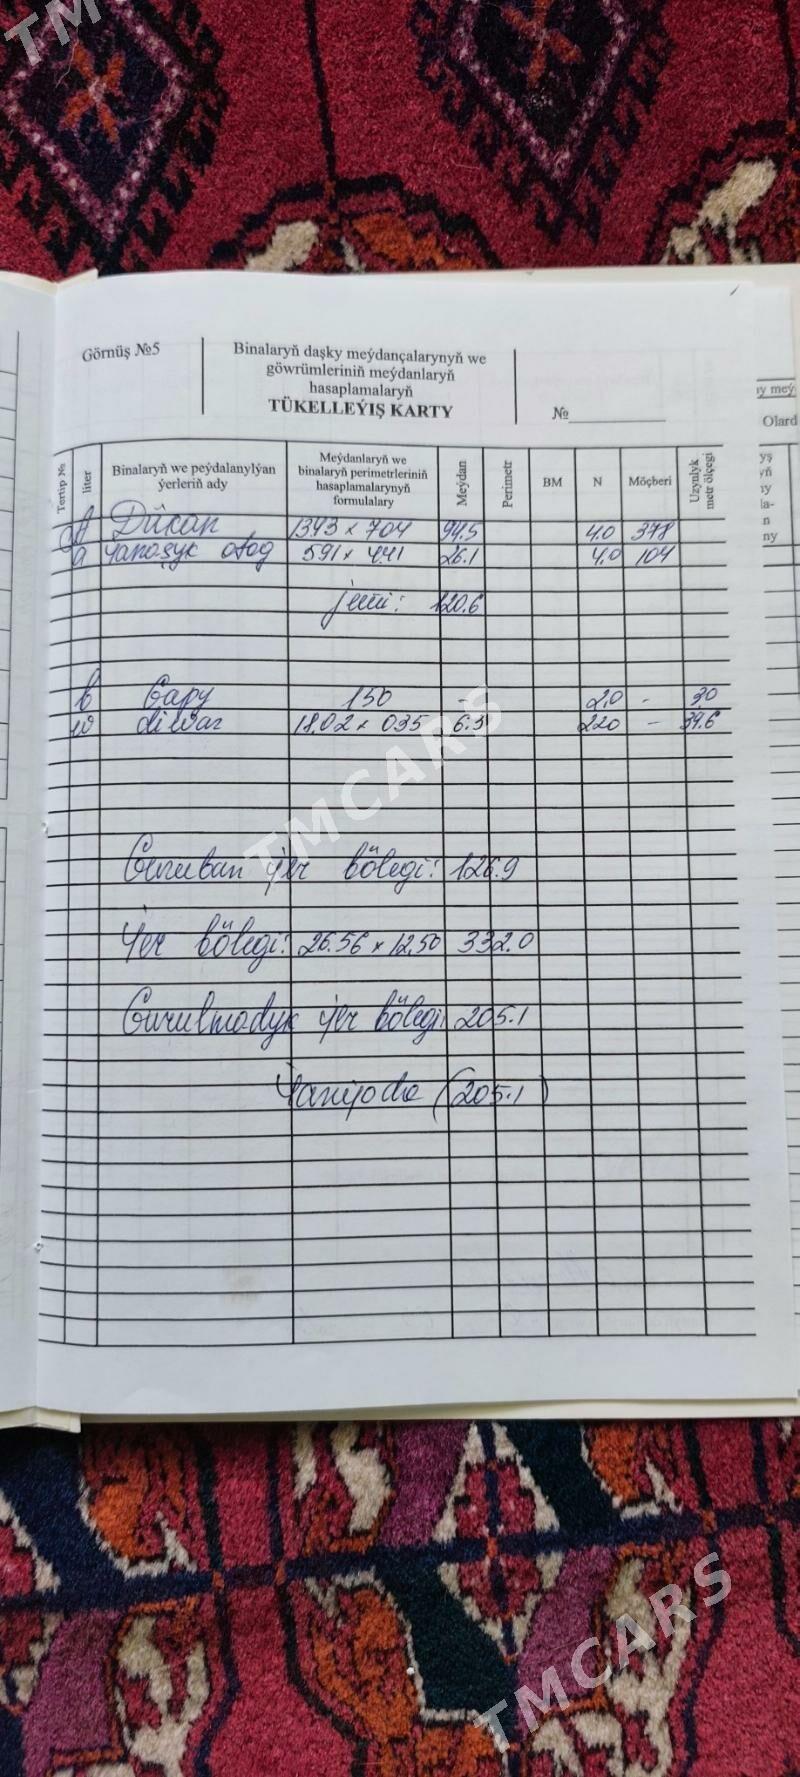 TMCARS
Görnüş №5
Binalaryň daşky meýdançalarynyň we
göwrümleriniň meýdanlaryň
hasaplamalaryň
TÜKELLEÝIŞ KARTY
№
ny meý
Olard
Tertip №
liter
Binalaryň we peýdalanylýan
ýerleriň ady
Meýdanlaryň we
binalaryň perimetrleriniň
hasaplamalarynyň
formulalary
Meýdan
Perimetr
BM
N
Möçberi
Uzynlyk
metr ölçegi
A Dükan 13.43 x 7.04 94.5 4.0 378
a ýanaşyk otag 5.91 x 4.41 26.1 4.0 104
jemi: 120.6
b Gapy 1.50 - 2.0 - 3.0
w diwar 18.02 x 0.35 6.3 2.20 - 39.6
TMCARS
Gurulan ýer bölegi: 126.9
Ýer bölegi: 26.56 x 12.50 332.0
Gurulmadyk ýer bölegi 205.1
(205.1)
TMCARS